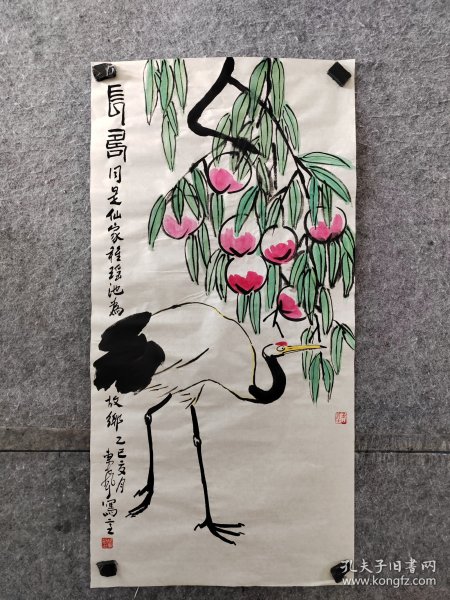 長壽
同是仙家種瑶池為
故鄉乙巳
月
寫
孔夫子旧书网
www.kongfz.com